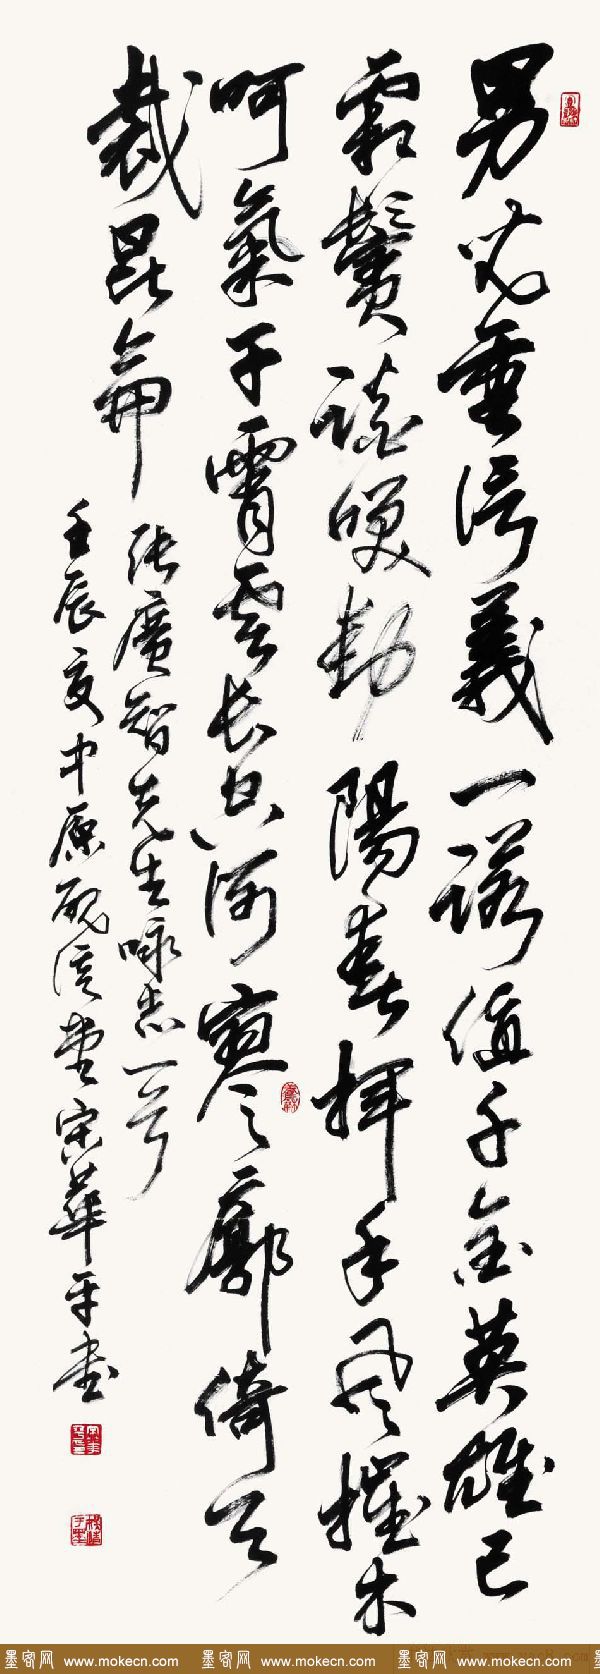 男兒重信義一諾值千金英雄已
霜鬢動陽春揮手風摧木
呵氣干霄雲長空何寥廓倚天
裁昆侖
張廣智先生咏志一首
壬辰夏中原宋華平書
墨客网 www.mokecn.com 墨客网 www.mokecn.com 墨客网 www.mokecn.com 墨客网 www.mokecn.com